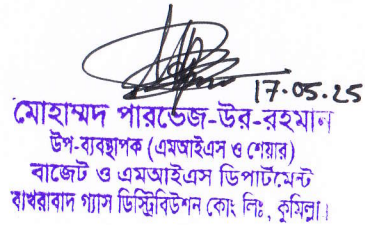 17.05.25
মোহাম্মদ পারভেজ-উর-রহমান
উপ-ব্যবস্থাপক (এমআইএস ও শেয়ার)
বাজেট ও এমআইএস ডিপার্টমেন্ট
বাখরাবাদ গ্যাস ডিস্ট্রিবিউশন কোং লিঃ, কুমিল্লা।